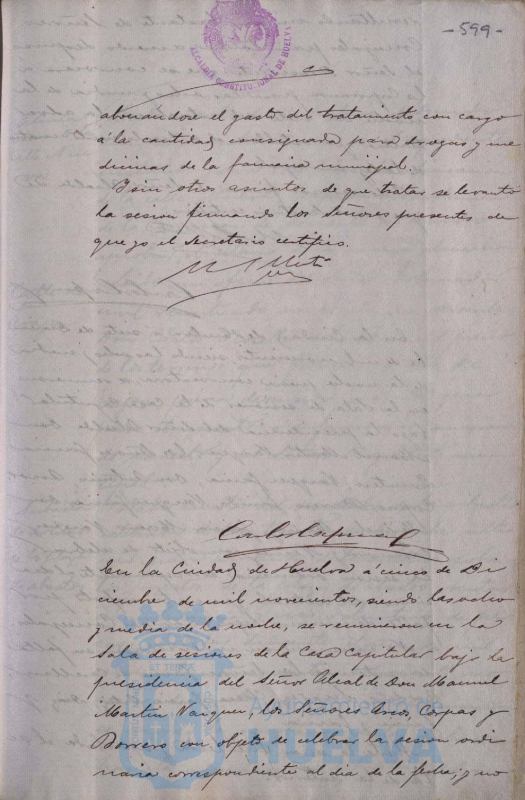 -599-
ALCALDÍA CONSTITUCIONAL DE HUELVA
abonandose el gasto del tratamiento con cargo
á la cantidad consignada para drogas y me
dicinas de la farmacia municipal.
Y sin otros asuntos de que tratar se levantó
la sesion firmando los Señores presentes de
que yo el Secretario certifico.
En la Ciudad de Huelva á cinco de Di
ciembre de mil novecientos, siendo las ocho
y media de la noche, se reunieron en la
Sala de sesiones de la Casa Capitular bajo la
presidencia del Señor Alcalde Don Manuel
Martin Vazquez, los Señores Corpas y
Borrero con objeto de celebrar la sesion ordi
naria correspondiente al dia de la fecha; y no
HUELVA